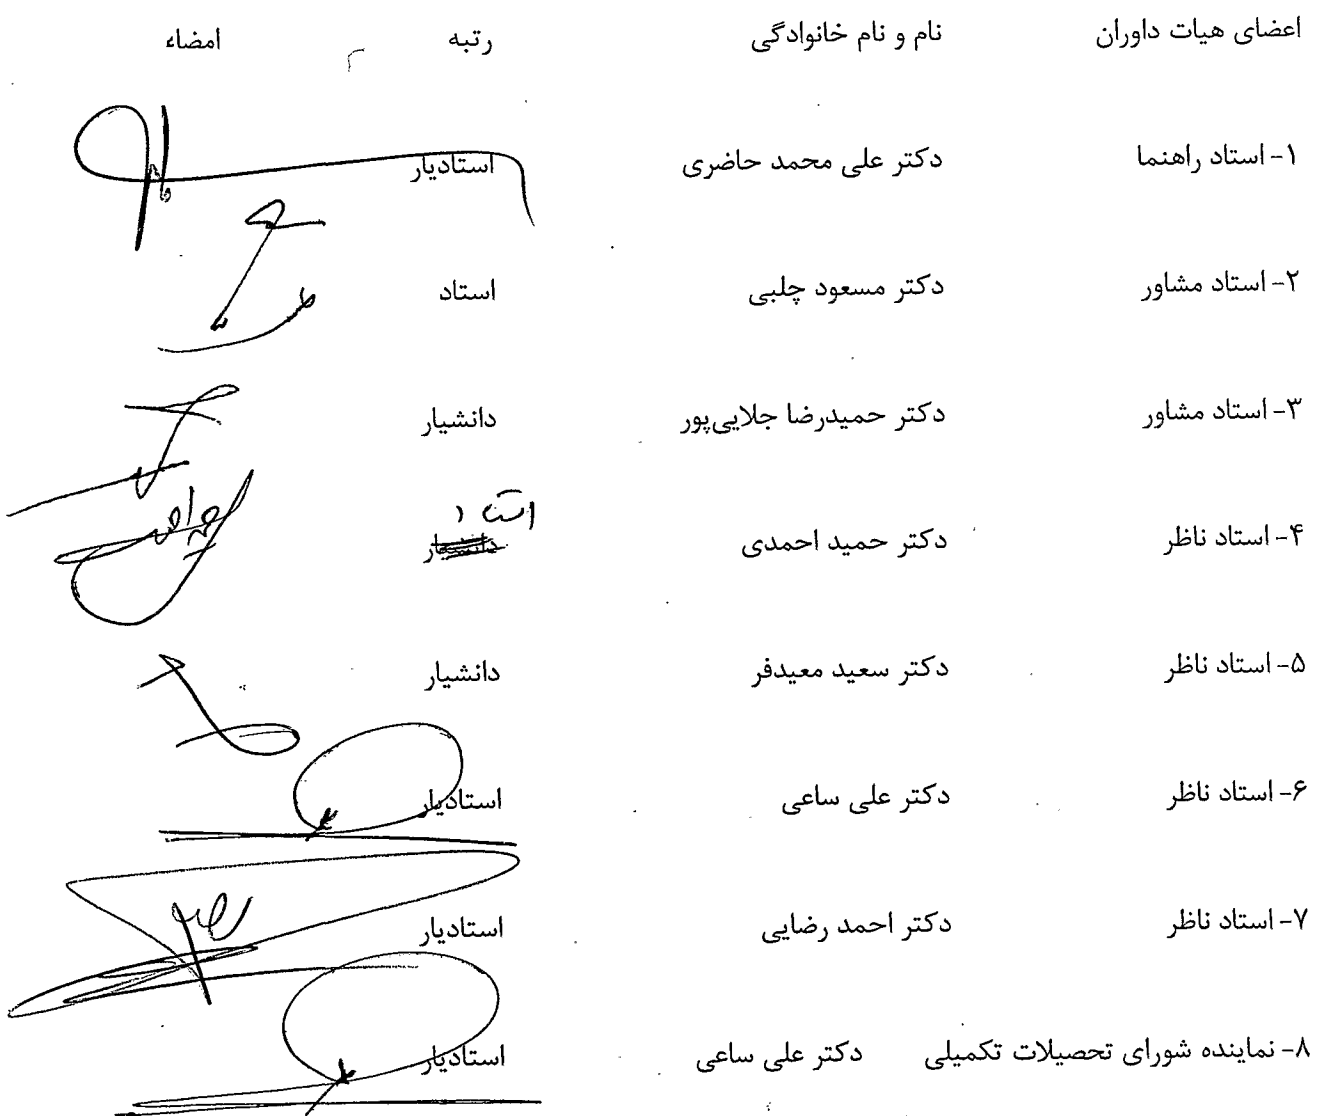 اعضای هیات داوران نام و نام خانوادگی رتبه امضاء
۱- استاد راهنما دکتر علی محمد حاضری استادیار
۲- استاد مشاور دکتر مسعود چلبی استاد
۳- استاد مشاور دکتر حمیدرضا جلایی‌پور دانشیار
استاد
۴- استاد ناظر دکتر حمید احمدی دانشیار
۵- استاد ناظر دکتر سعید معیدفر دانشیار
۶- استاد ناظر دکتر علی ساعی استادیار
۷- استاد ناظر دکتر احمد رضایی استادیار
۸- نماینده شورای تحصیلات تکمیلی دکتر علی ساعی استادیار